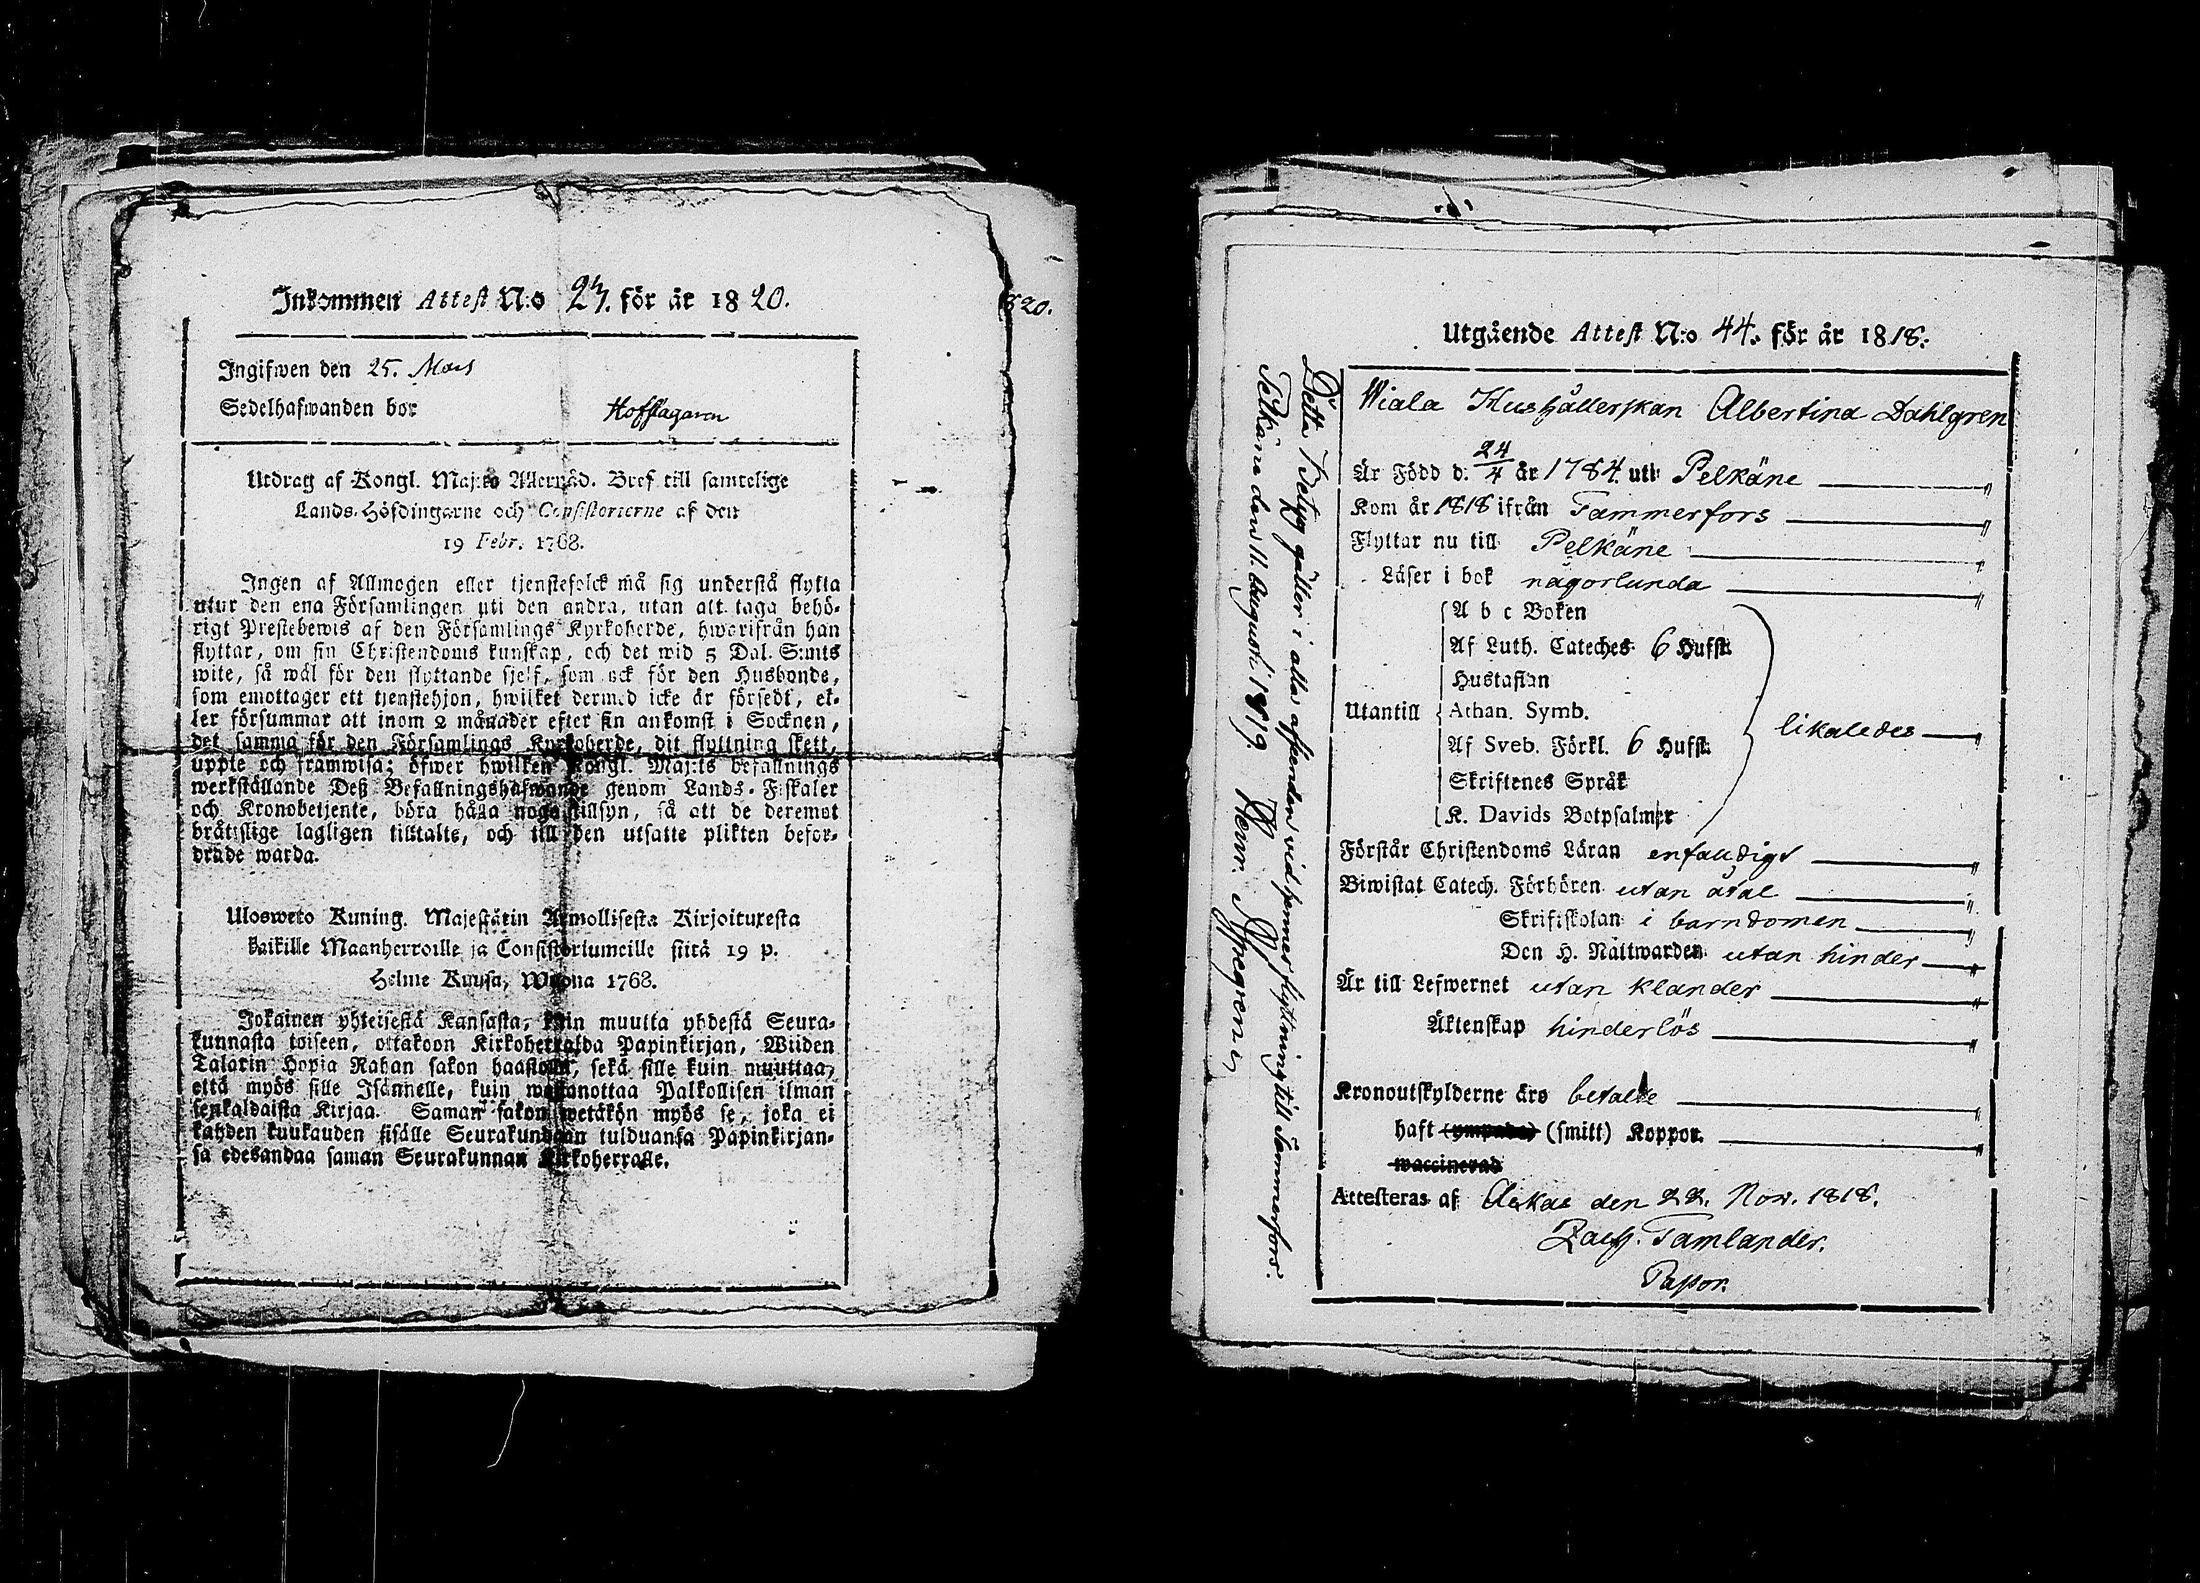 Inkommen Attest N:o 27. för år 1820.
1820.
Ingifwen den 25. Mars
Sedelhafwanden bor
Hofslagaren
Utdrag af Kongl. Maj:ts Allernåd. Bref till samtelige
Lands-Höfdingarne och Consistorierne af den
19 Febr. 1768.
Ingen af Allmogen eller tjenstefolck må sig understå flytta
utur den ena Församlingen uti den andra, utan att taga behö-
rigt Prestebewis af den Församlings Kyrkoherde, hwarifrån han
flyttar, om sin Christendoms kunskap, och det wid 5 Dal. S:mts
wite, så wäl för den flyttande sjelf, som ock för den Husbonde,
som emottager ett tjenstehjon, hwilket dermed icke är försedt, el-
ler försummar att inom 2 månader efter sin ankomst i Socknen,
det samma för den Församlings Kyrkoherde, dit flyttning skett,
uppte och framwisa; öfwer hwilken Kongl. Maj:ts befallnings
werkställande Deß Befallningshafwande genom Lands-Fiskaler
och Kronobetjente, böra hålla noga tillsyn, så att de deremot
bråtslige lagligen tilltalte, och till den utsatte plikten befor-
drade warda.
Ulosweto Kuning. Majestätin Armollisesta Kirjoituxesta
kaikille Maanherroille ja Consistoriumeille siitä 19 p.
Helme Kuusa, Wuona 1768.
Jokainen yhteisestä Kansasta, kuin muutta yhdestä Seura-
kunnasta toiseen, ottakoon Kirkoherralda Papinkirjan, Wiiden
Talarin Hopia Rahan sakon haastolla, sekä sille kuin muuttaa,
että myös sille Isännelle, kuin wastanottaa Palkollisen ilman
senkaldaista Kirjaa. Saman sakon wetäkön myös se, joka ei
kahden kuukauden sisälle Seurakundaan tulduansa Papinkirjan-
sa edesandaa saman Seurakunnan Kirkoherralle.
Utgående Attest N:o 44. för år 1818.
Wiala Hushållerskan Albertina Dahlgren
Är Född d. 24/4 år 1784. uti Pelkäne
Kom år 1818 ifrån Tammerfors
Flyttar nu till Pelkäne
Läser i bok någorlunda
Utantill
A b c Boken
Af Luth. Cateches 6 Hufst.
Hustaflan
Athan. Symb.
Af Sveb. Förkl. 6 Hufst.
Skriftenes Språk
K. Davids Botpsalmer
likaledes
Förstår Christendoms Läran enfaldigt
Biwistat Catech. Förhören utan åtal
Skriftskolan i barndomen
Den H. Nattwarden utan hinder
Är till Lefwernet utan klander
Äktenskap hinderlös
Kronoutskylderne äro betalte
haft (ympade) (smitt) Koppor.
waccinerad
Attesteras af Ackas den 22. Nov. 1818.
Zach. Tamlander.
Pastor.
Detta Betyg gäller i allas afseenden vid hennes flyttning till Tammerfors.
Pelkäne den 11. Augusti 1819 Henr. Appegren